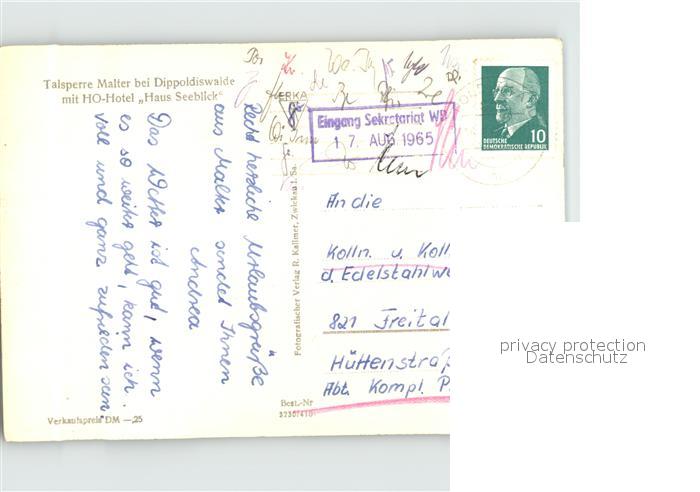 Talsperre Malter bei Dippoldiswalde
mit HO-Hotel „Haus Seeblick"
Recht herzliche Urlaubsgrüße
aus Malter sendet Ihnen
Andrea
Das Wetter ist gut, wenn
es so weiter geht, kann ich
voll und ganz zufrieden sein.
Verkaufspreis DM —,25
Fotografischer Verlag R. Kallmer, Zwickau i. Sa.
Best.-Nr
Eingang Sekretariat WB
17. AUG 1965
DEUTSCHE
DEMOKRATISCHE REPUBLIK
10
An die
Kolln. u. Koll.
d. Edelstahlw
821 Freital
Hüttenstraß
Abt. Kompl. P.
privacy protection
Datenschutz